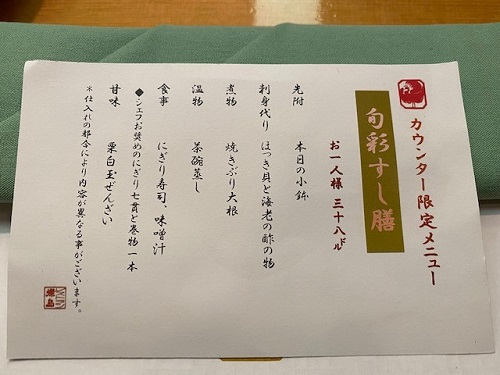 カウンター限定メニュー
旬彩すし膳
お一人様 三十八ドル
先附 本日の小鉢
刺身代り ほっき貝と海老の酢の物
煮物 焼きぶり大根
温物 茶碗蒸し
食事 にぎり寿司、味噌汁
◆シェフお奨めのにぎり七貫と巻物一本
甘味 栗白玉ぜんざい
*仕入れの都合により内容が異なる事がございます。